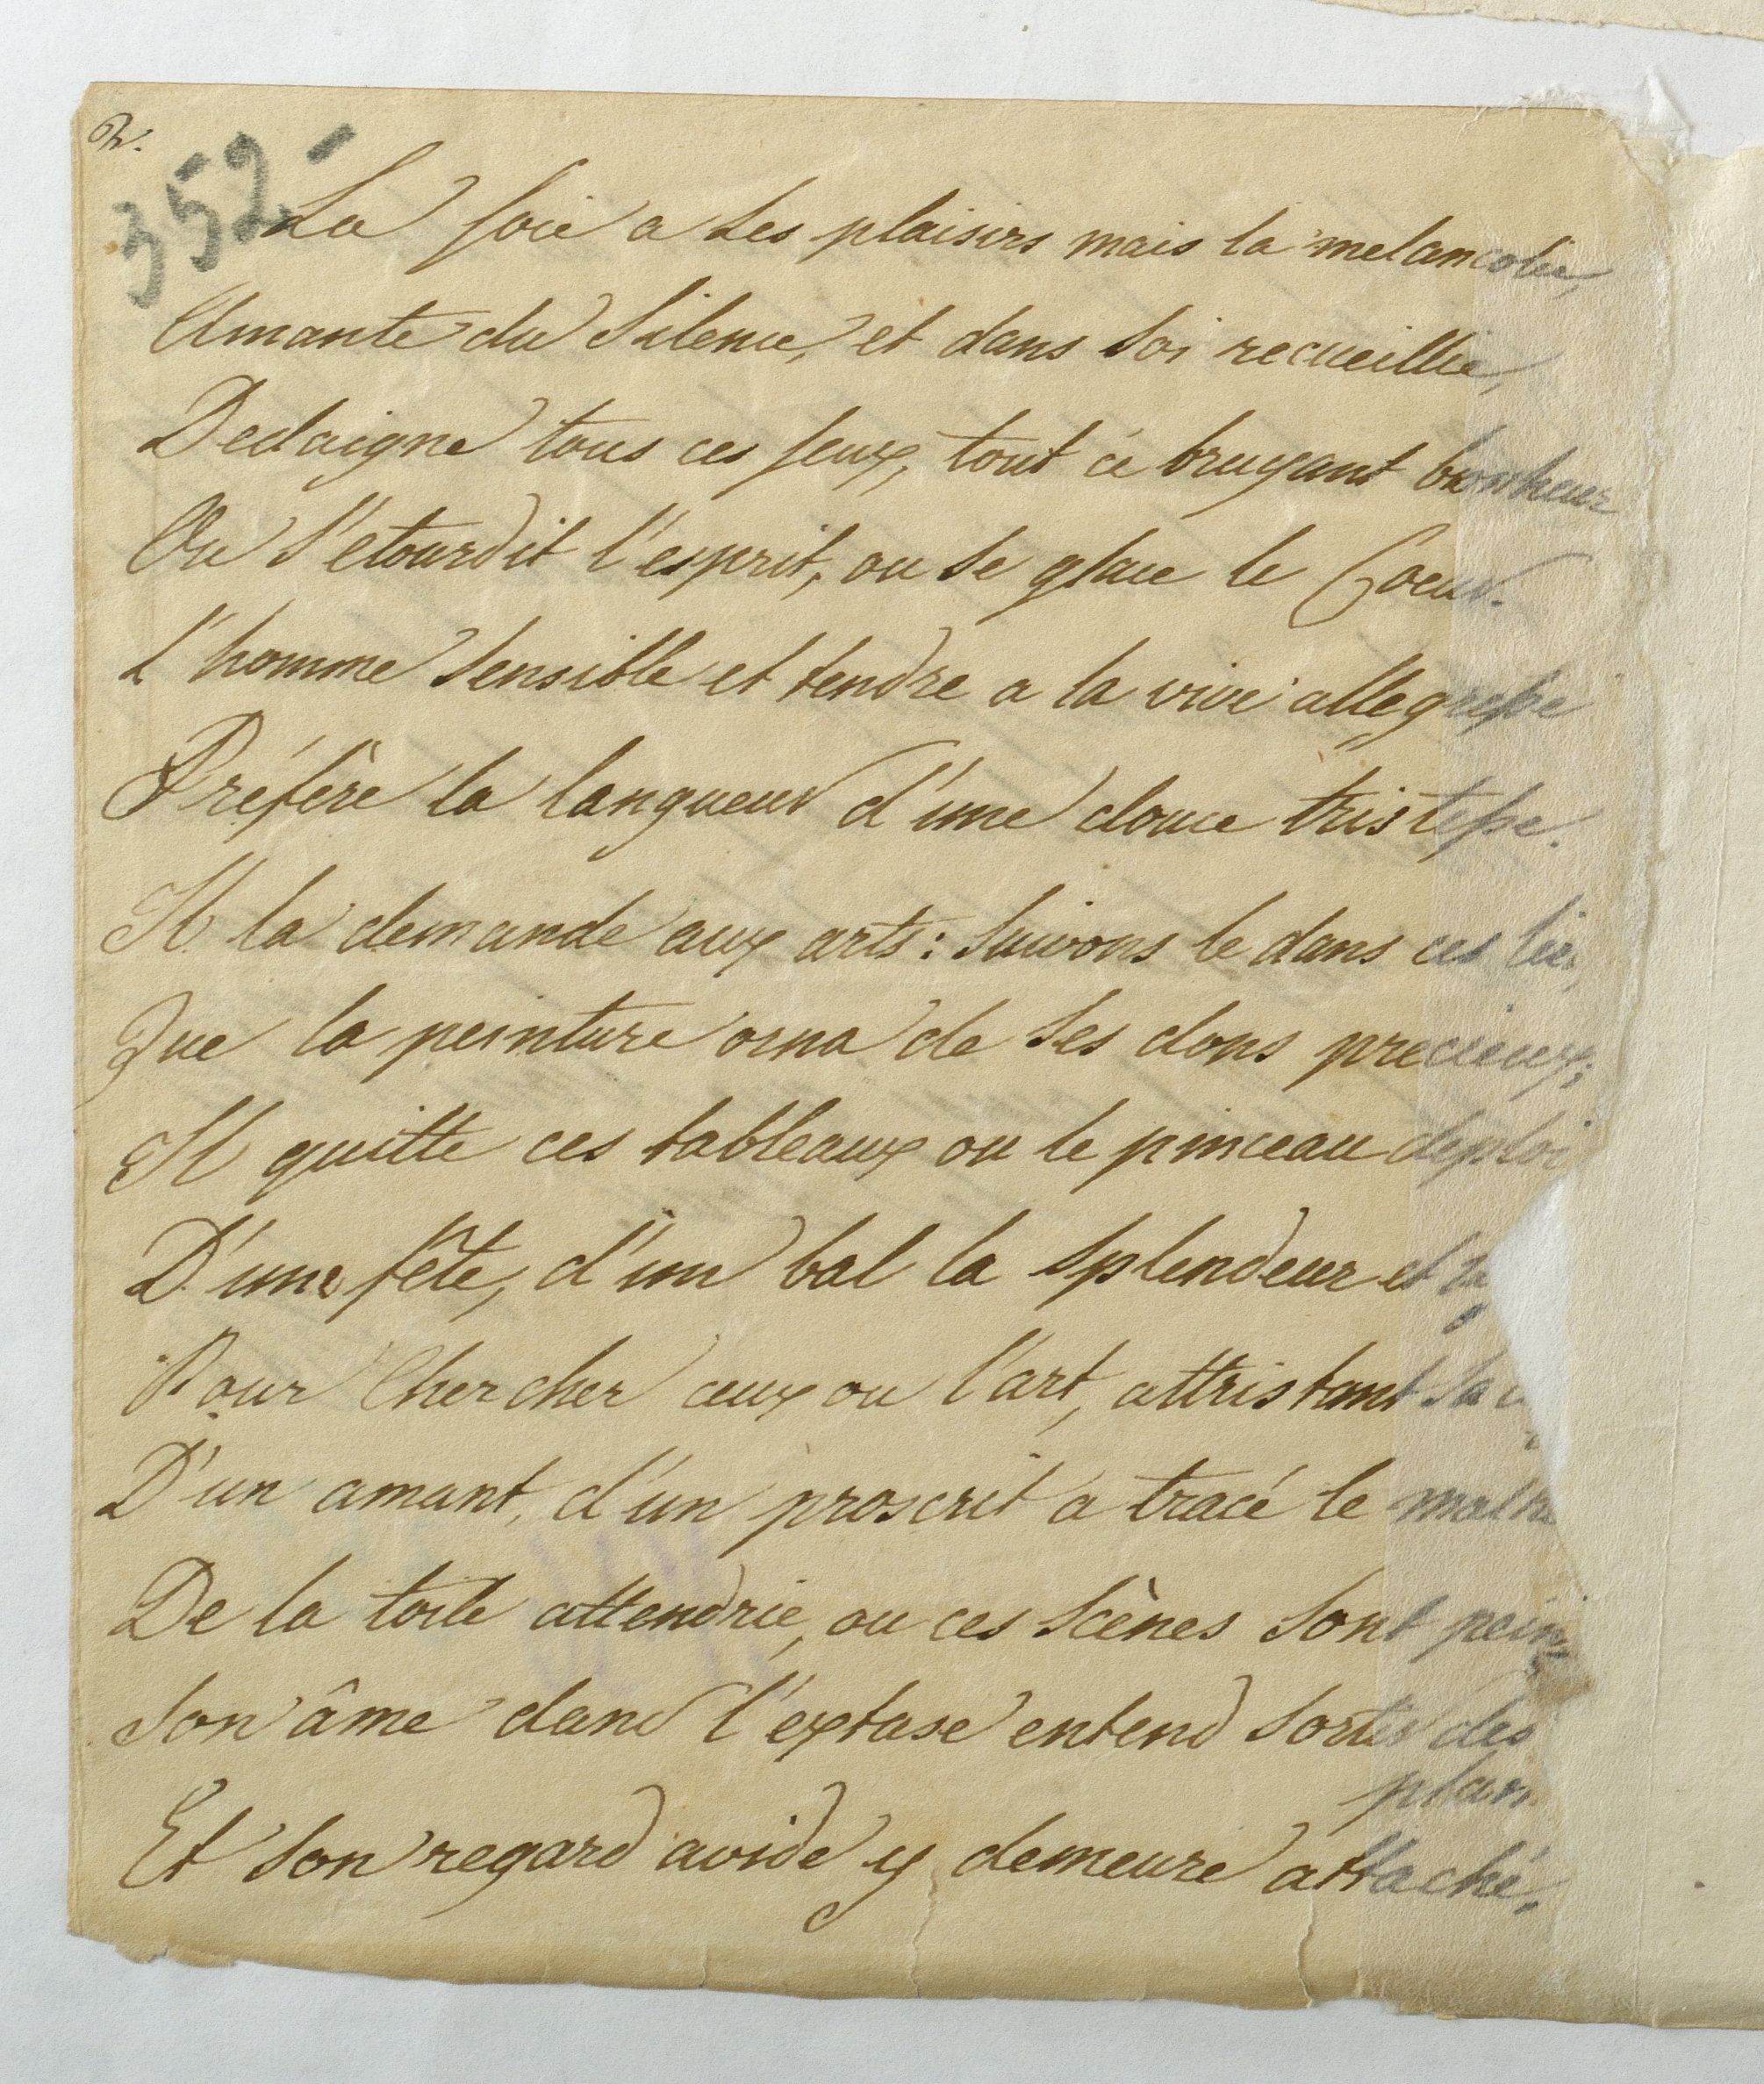 352-
La joie a ses plaisirs mais la melancolie,
Amante du silence, et dans soi recueillie,
Dedaigne tous ces jeux, tout ce bruyant bonheur
Ou s'etourdit l'esprit, ou se glace le Coeur.
L'homme sensible et tendre a la vive allegresse
Préfère la langueur d'une douce tristesse.
Il la demande aux arts: suivons le dans ces
Que la peinture orna de ses dons precieux;
Il quitte ces tableaux ou le pinceau deploi
D'une fête, d'un bal la splendeur et la
Pour Chercher ceux ou l'art, attristant sa
D'un amant, d'un proscrit a tracé le malh
De la toile attendrie, ou ces scènes sont pein
Son âme dans l'extase entend sortir des
plain
Et son regard avide y demeure attaché,